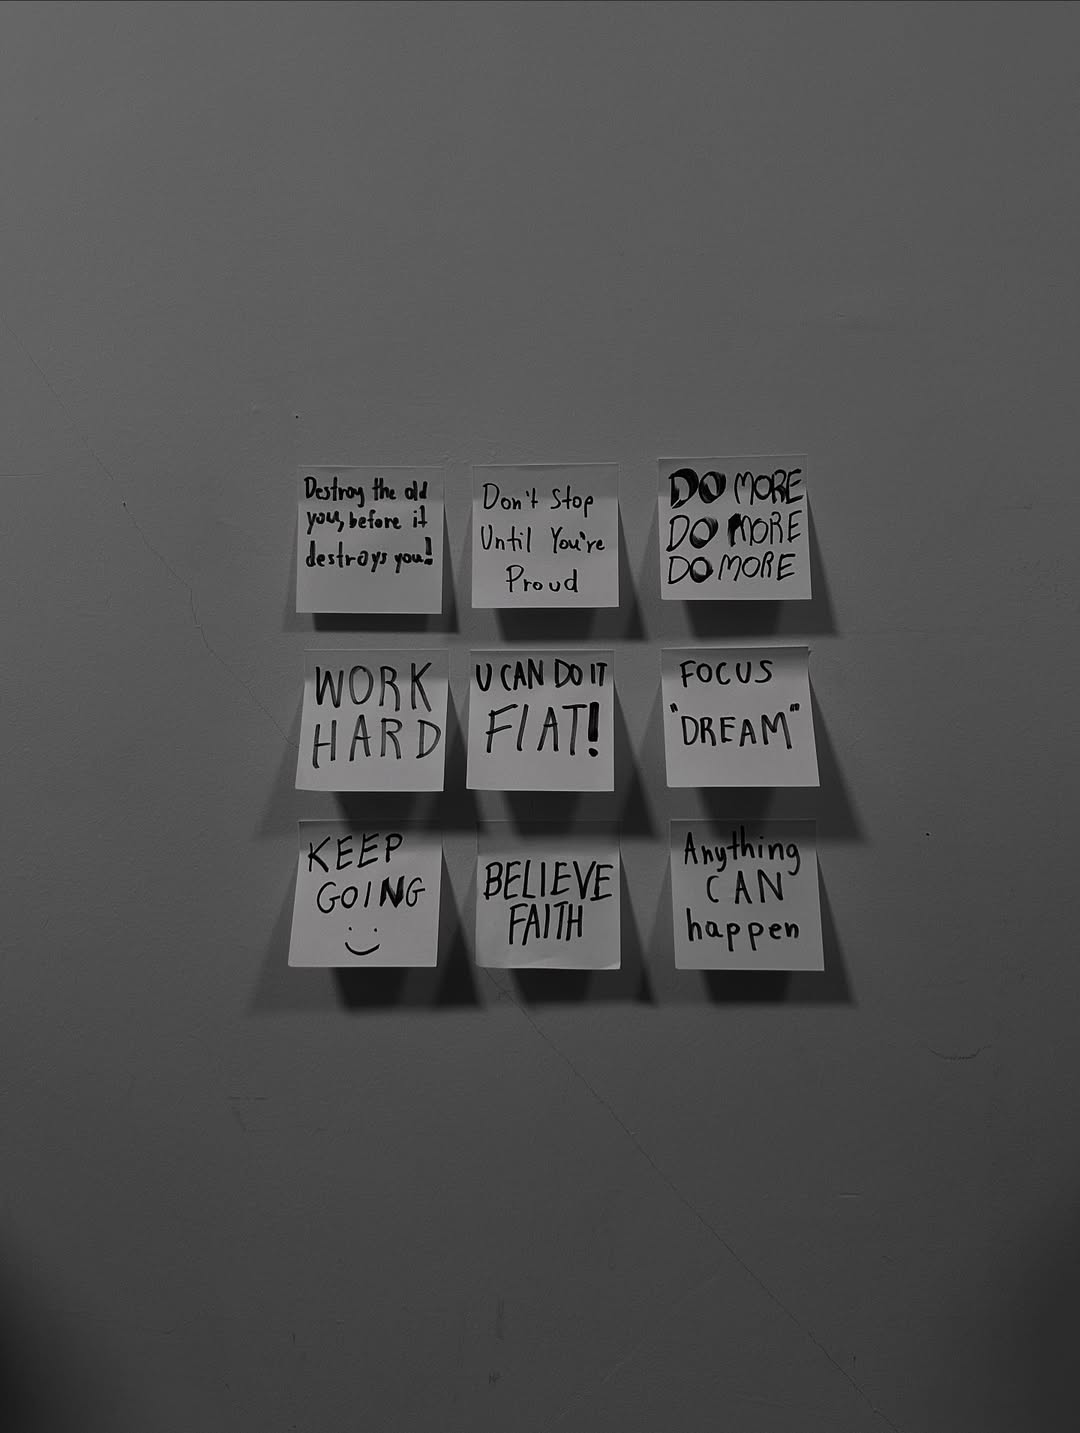 Destroy the old
you, before it
destroys you!
Don't Stop
Until You're
Proud
DO MORE
DO MORE
DO MORE
WORK
HARD
U CAN DO IT
FIAT!
FOCUS
"DREAM"
KEEP
GOING
BELIEVE
FAITH
Anything
CAN
happen